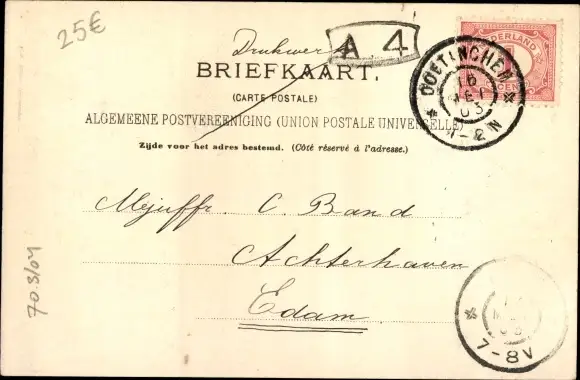 25€
Drukwerk
A 4
BRIEFKAART.
(CARTE POSTALE)
ALGEMEENE POSTVEREENIGING (UNION POSTALE UNIVERSELLE)
Zijde voor het adres bestemd. (Côté réservé à l'adresse.)
NEDERLAND
DOETINCHEM
6
MEI
03
1-2 N
Mejuffr. C. Band
Achterhaven
Edam
70.5/04
7-8V